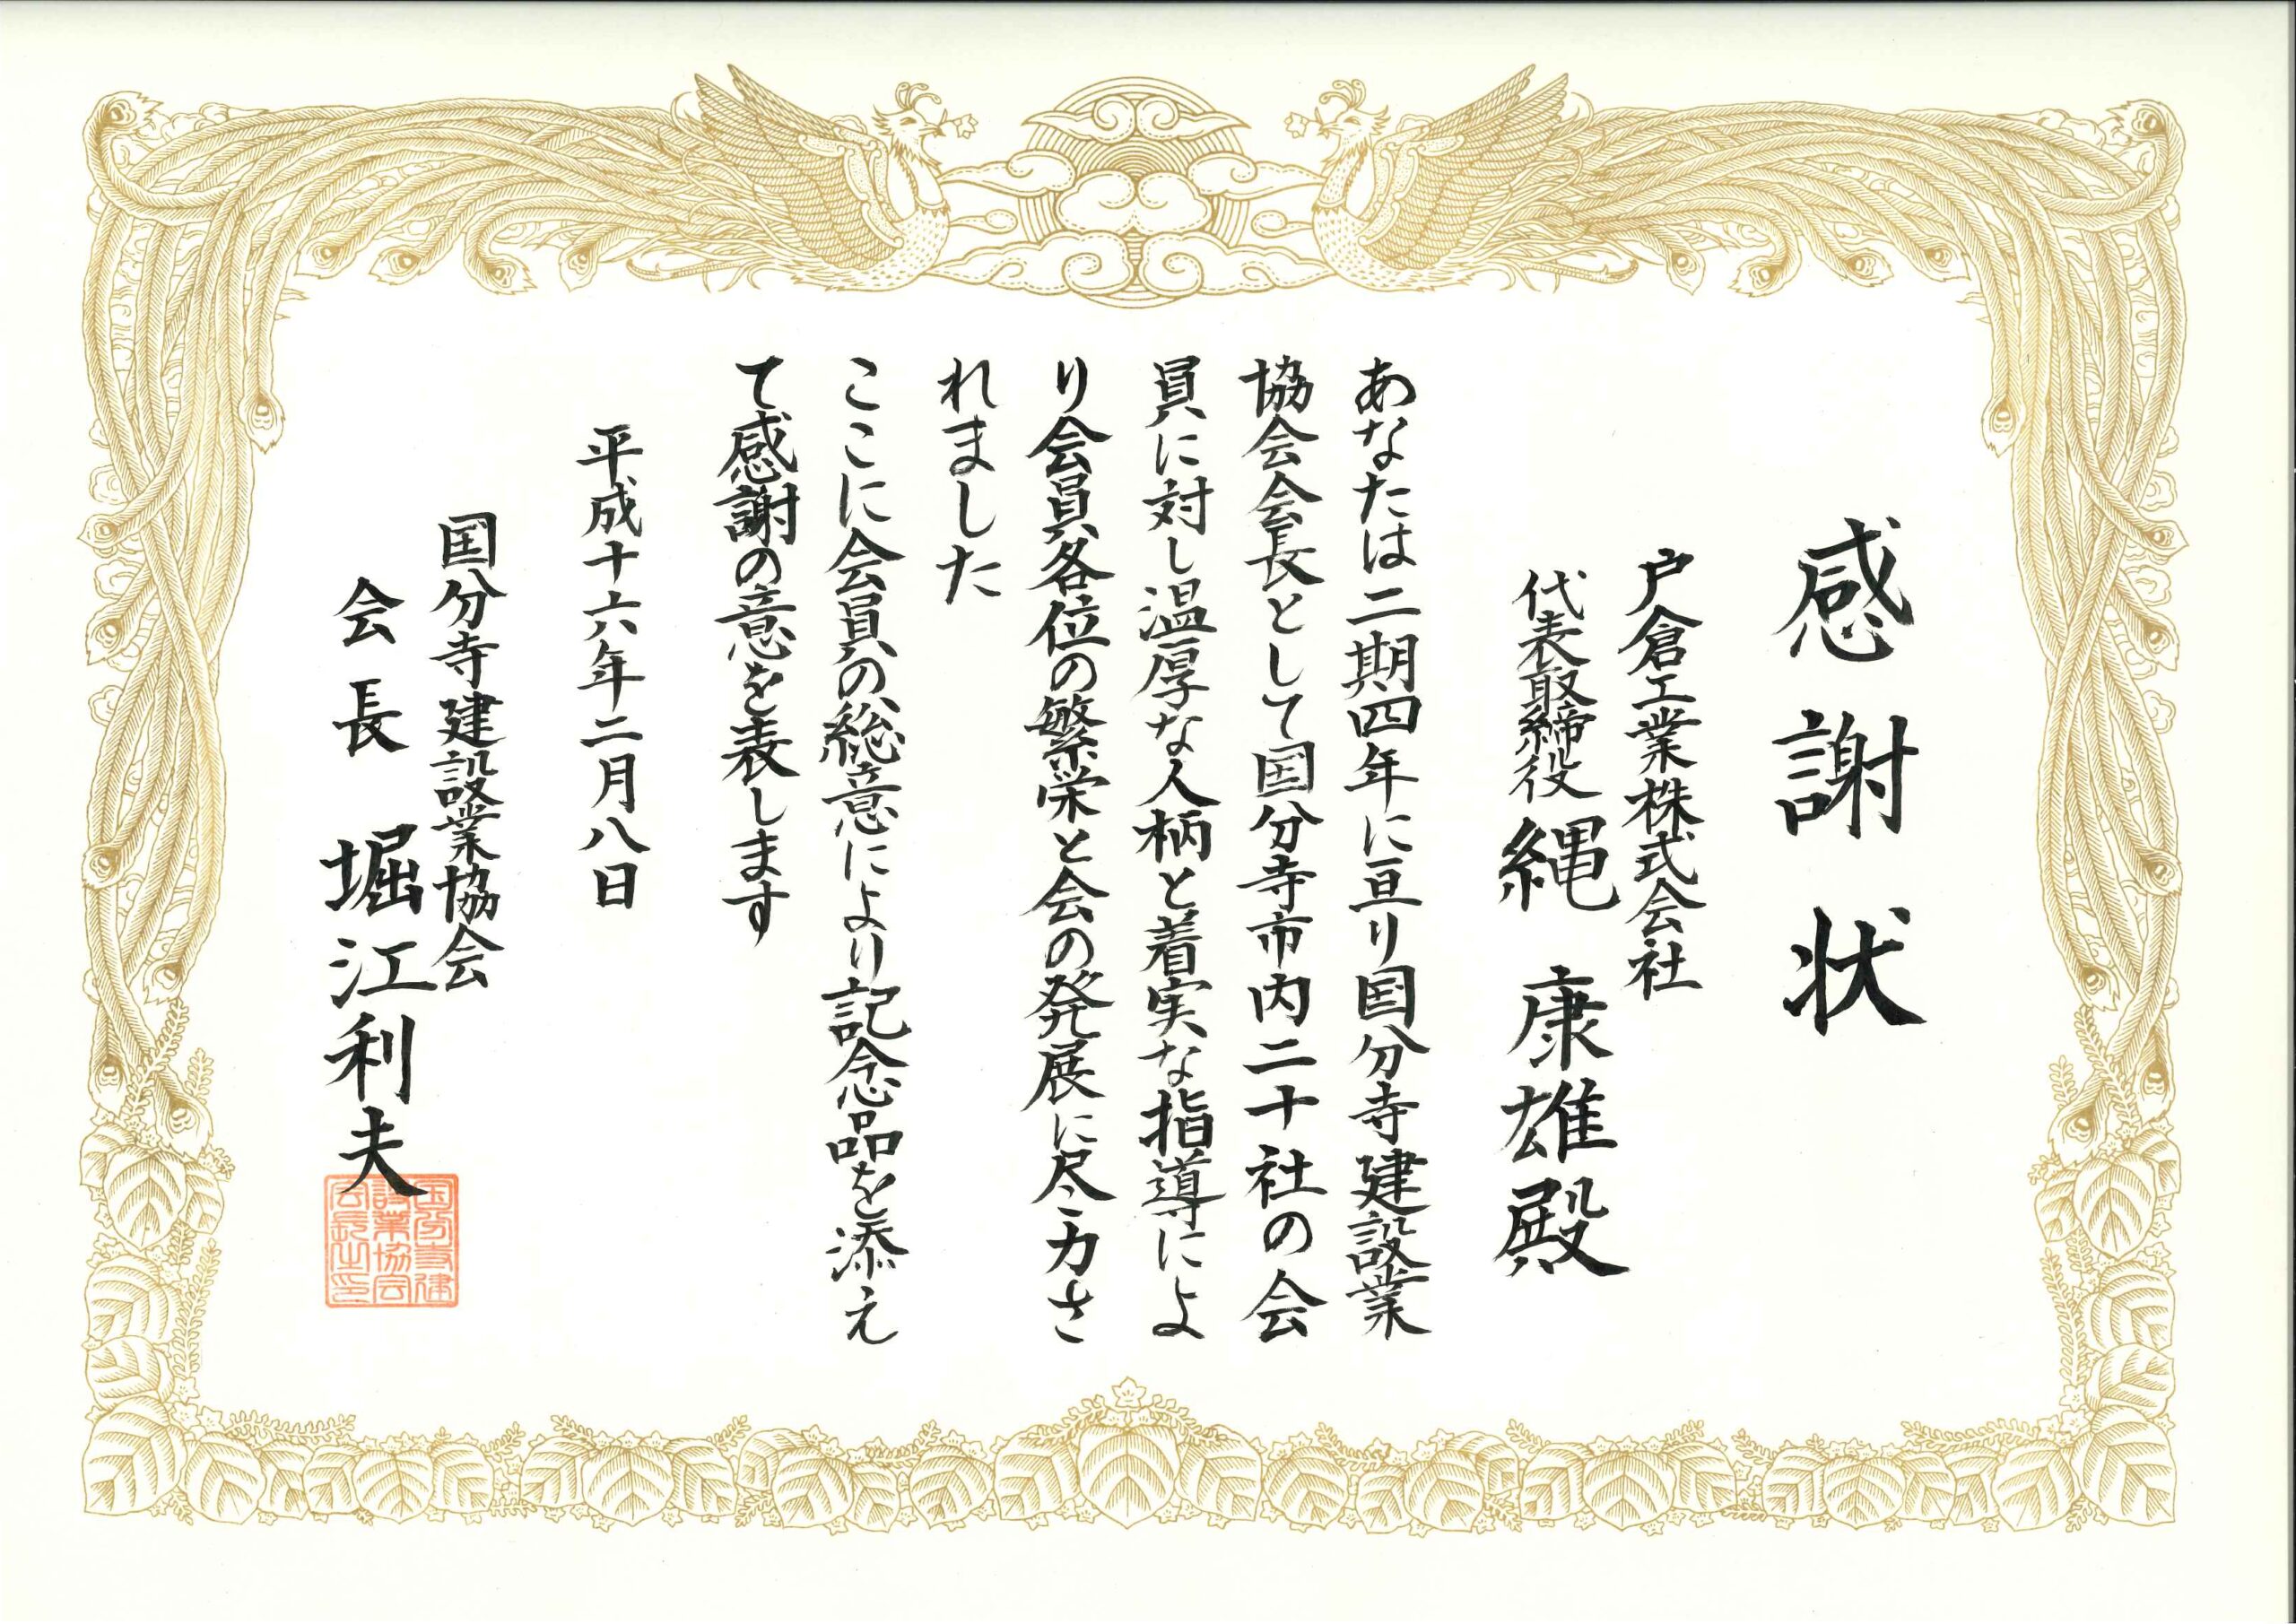 感謝状
戸倉工業株式会社
代表取締役 縄 康雄殿
あなたは二期四年に亘り国分寺建設業
協会会長として国分寺市内二十社の会
員に対し温厚な人柄と着実な指導によ
り会員各位の繁栄と会の発展に尽力さ
れました
ここに会員の総意により記念品を添え
て感謝の意を表します
平成十六年二月八日
国分寺建設業協会
会長 堀江利夫
国分寺建
設業協会
会長之印